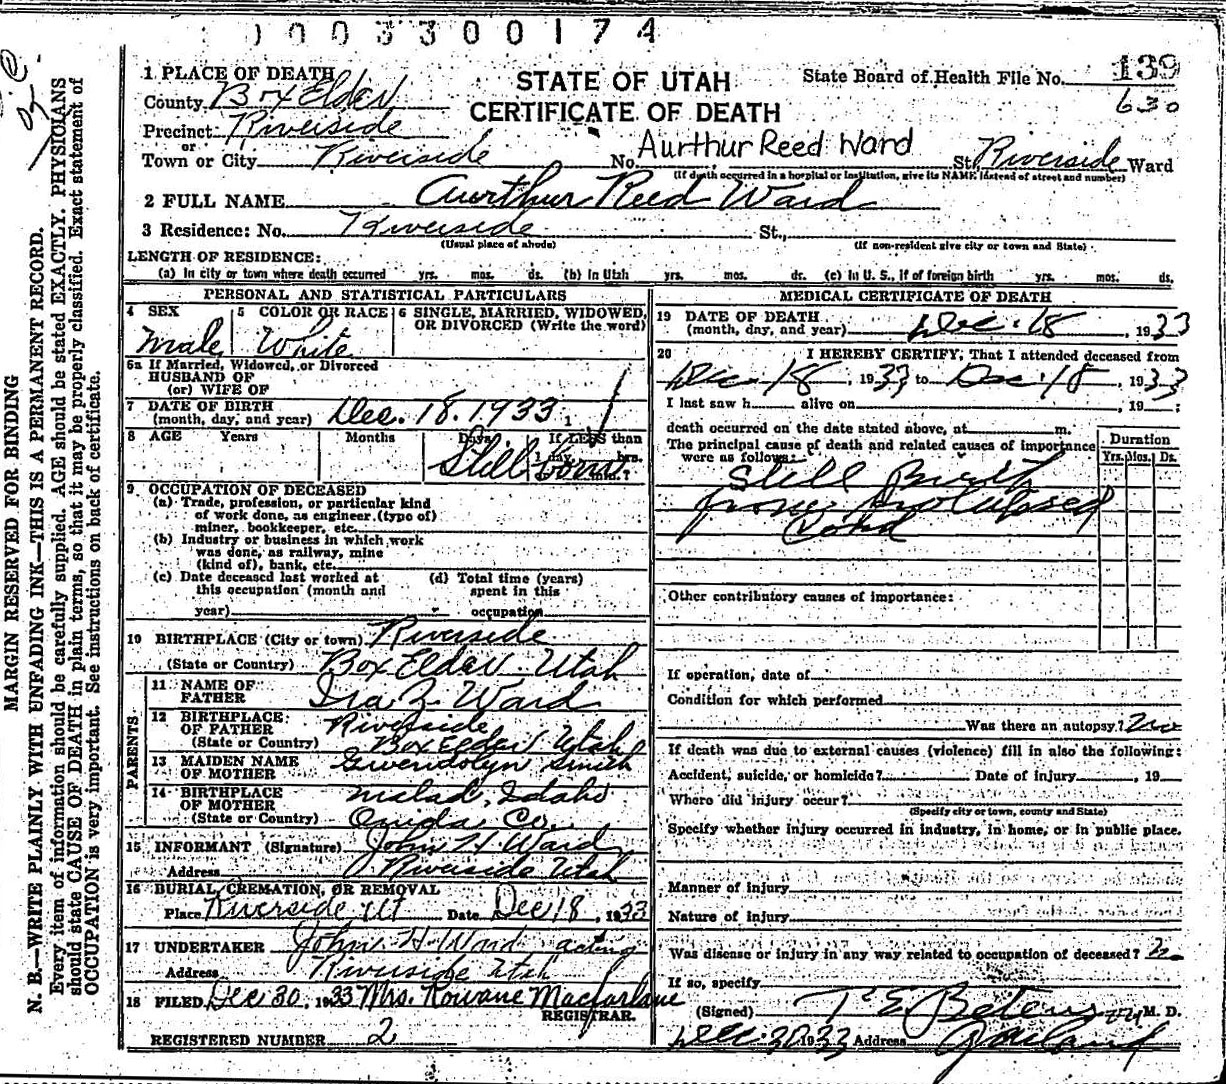 0003300174
1 PLACE OF DEATH
STATE OF UTAH
State Board of Health File No. 139
County Box Elder
CERTIFICATE OF DEATH
630
Precinct Riverside
or
Town or City Riverside No. Aurthur Reed Ward St. Riverside Ward
(If death occurred in a hospital or institution, give its NAME instead of street and number)
2 FULL NAME Aurthur Reed Ward
3 Residence: No. Riverside St.,
(Usual place of abode) (If non-resident give city or town and State)
LENGTH OF RESIDENCE:
(a) In city or town where death occurred yrs. mos. ds. (b) In Utah yrs. mos. ds. (c) In U. S., if of foreign birth yrs. mos. ds.
PERSONAL AND STATISTICAL PARTICULARS
4 SEX Male
5 COLOR OR RACE White
6 SINGLE, MARRIED, WIDOWED, OR DIVORCED (Write the word)
6a If Married, Widowed, or Divorced
HUSBAND OF
(or) WIFE OF
7 DATE OF BIRTH
(month, day, and year) Dec. 18. 1933, 1
8 AGE Years Months Days If LESS than
1 day, hrs.
or min.?
Still born
9 OCCUPATION OF DECEASED
(a) Trade, profession, or particular kind
of work done, as engineer (type of)
miner, bookkeeper, etc.
(b) Industry or business in which work
was done, as railway, mine
(kind of), bank, etc.
(c) Date deceased last worked at
this occupation (month and
year)
(d) Total time (years)
spent in this
occupation
10 BIRTHPLACE (City or town) Riverside
(State or Country) Box Elder Utah
PARENTS
11 NAME OF
FATHER Ira Z Ward
12 BIRTHPLACE
OF FATHER Riverside
(State or Country) Box Elder Utah
13 MAIDEN NAME
OF MOTHER Gwendolyn Smith
14 BIRTHPLACE
OF MOTHER Malad, Idaho
(State or Country) Onida Co.
15 INFORMANT (Signature) John H. Ward
Address Riverside Utah
16 BURIAL, CREMATION, OR REMOVAL
Place Riverside, Ut Date Dec 18, 1933
17 UNDERTAKER John H Ward acting
Address Riverside Utah
18 FILED Dec 30, 1933 Mrs. Rowane Macfarlane
REGISTRAR.
REGISTERED NUMBER 2
MEDICAL CERTIFICATE OF DEATH
19 DATE OF DEATH
(month, day, and year) Dec. 18, 1933
20 I HEREBY CERTIFY, That I attended deceased from
Dec. 18, 1933 to Dec. 18, 1933
I last saw h alive on , 19 ;
death occurred on the date stated above, at m.
The principal cause of death and related causes of importance
were as follows:
Duration
Yrs. Mos. Ds.
Still Birth
from Prolapsed
Cord
Other contributory causes of importance:
If operation, date of
Condition for which performed
Was there an autopsy? no
If death was due to external causes (violence) fill in also the following:
Accident, suicide, or homicide? Date of injury , 19
Where did injury occur?
(Specify city or town, county and State)
Specify whether injury occurred in industry, in home, or in public place.
Manner of injury
Nature of injury
Was disease or injury in any way related to occupation of deceased? no
If so, specify
(Signed) T E M. D.
Dec. 30 1933 Address Garland
MARGIN RESERVED FOR BINDING
N. B.—WRITE PLAINLY WITH UNFADING INK—THIS IS A PERMANENT RECORD.
Every item of information should be carefully supplied. AGE should be stated EXACTLY. PHYSICIANS
should state CAUSE OF DEATH in plain terms, so that it may be properly classified. Exact statement of
OCCUPATION is very important. See instructions on back of certificate.